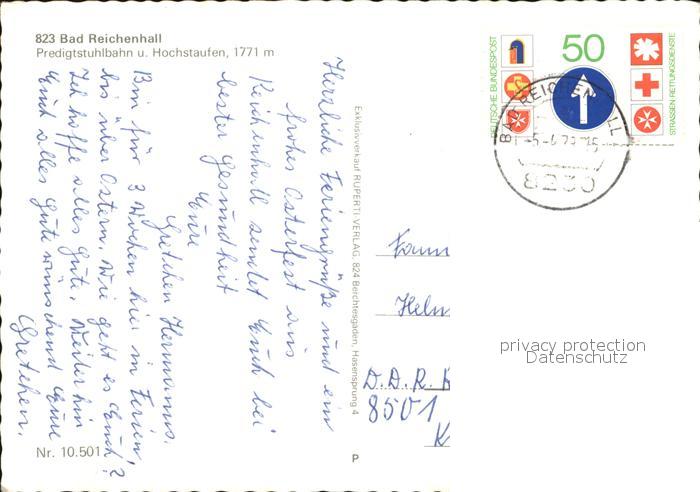 823 Bad Reichenhall
Predigtstuhlbahn u. Hochstaufen, 1771 m
Herzliche Feriengrüße und ein
frohes Osterfest aus
Reichenhall sendet Euch bei
bester Gesundheit
Eure
Gretchen Hermanns.
Bin für 3 Wochen hier in Ferien,
bis über Ostern. Wie geht es Euch?
Ich hoffe alles Gute. Weiterhin
Euch alles Gute wünschend Eure
Gretchen.
Nr. 10.501
Exklusivverkauf RUPERTI-VERLAG, 824 Berchtesgaden, Hasensprung 4
P
DEUTSCHE BUNDESPOST
50
STRASSEN-RETTUNGSDIENSTE
BAD REICHENHALL
8230
Fam
Helm
D.D.R.
8501
K
privacy protection
Datenschutz